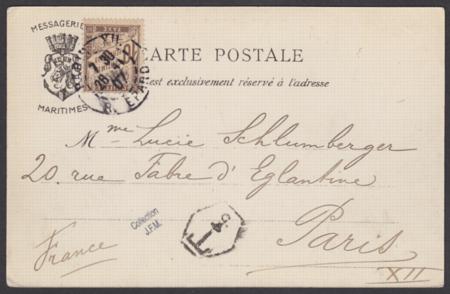 MESSAGERIES
MARITIMES
CARTE POSTALE
est exclusivement réservé à l'adresse
PARIS XII
7 30
07
R. ERARD
Mme Lucie Schlumberger
20. rue Fabre d'Eglantine
Paris
XII
France
Collection
J.F.M.
T